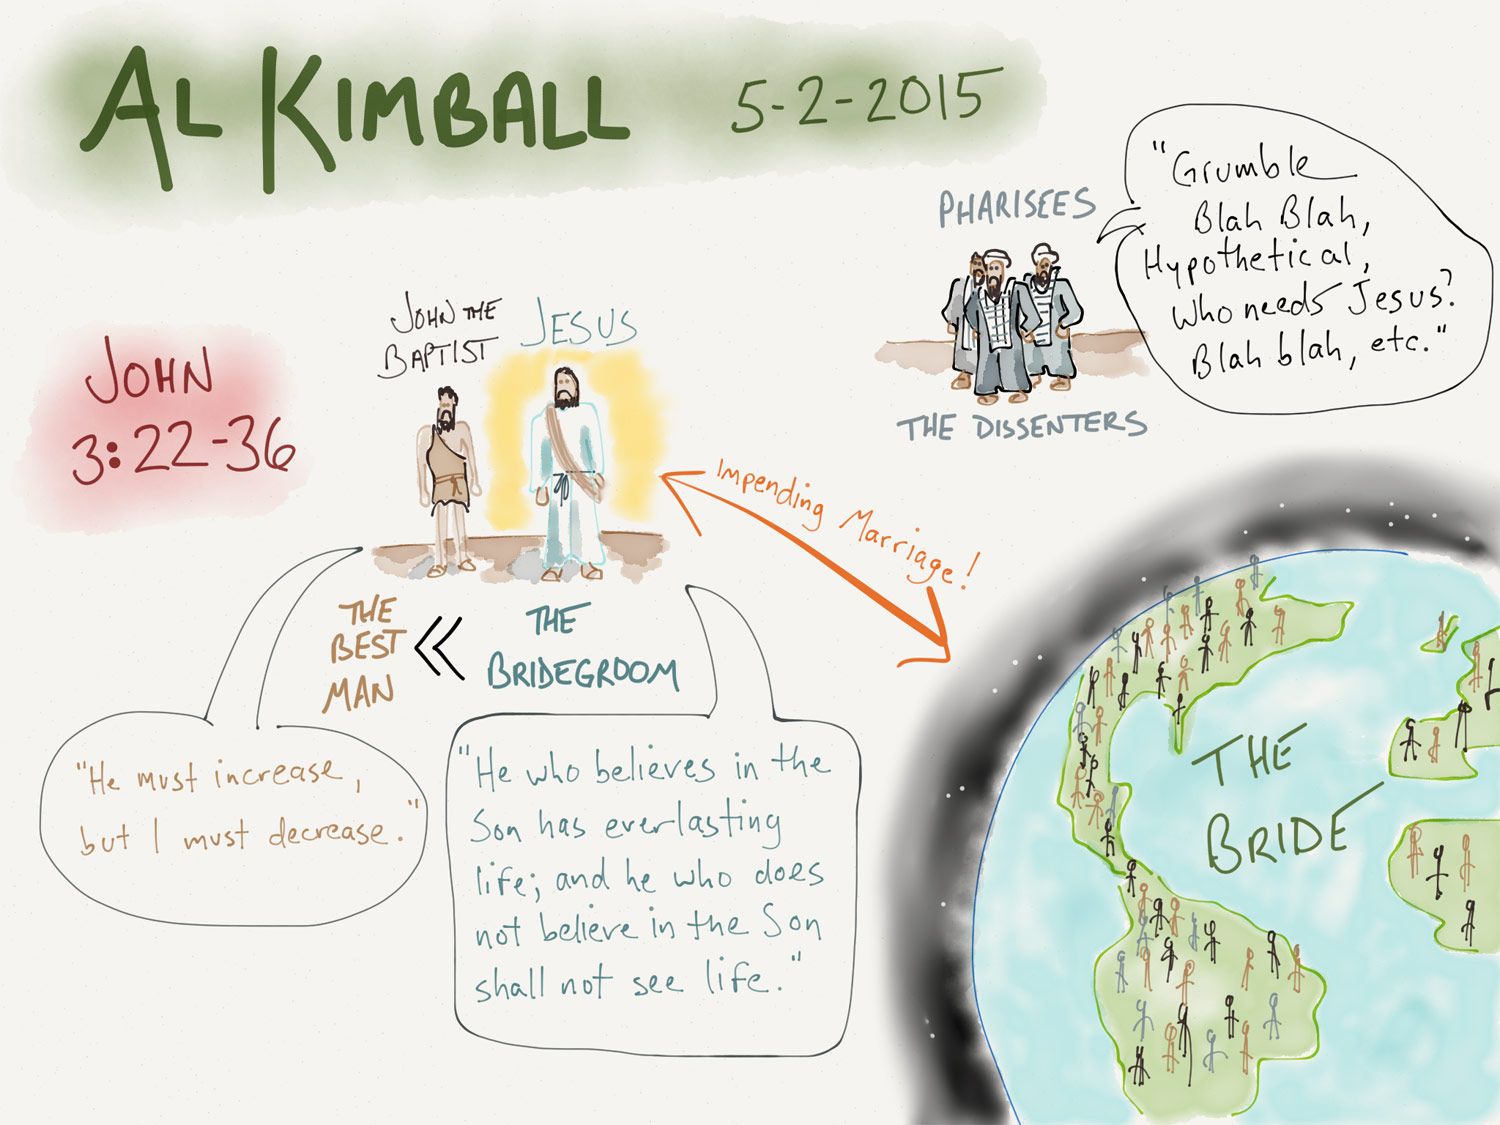 AL KIMBALL
5-2-2015
"Grumble
Blah Blah,
Hypothetical,
Who needs Jesus?
Blah blah, etc."
PHARISEES
THE DISSENTERS
JOHN
3:22-36
JOHN THE
BAPTIST
JESUS
Impending Marriage!
THE
BEST
MAN
<<
THE
BRIDEGROOM
"He must increase,
but I must decrease."
"He who believes in the
Son has everlasting
life; and he who does
not believe in the Son
shall not see life."
THE
BRIDE